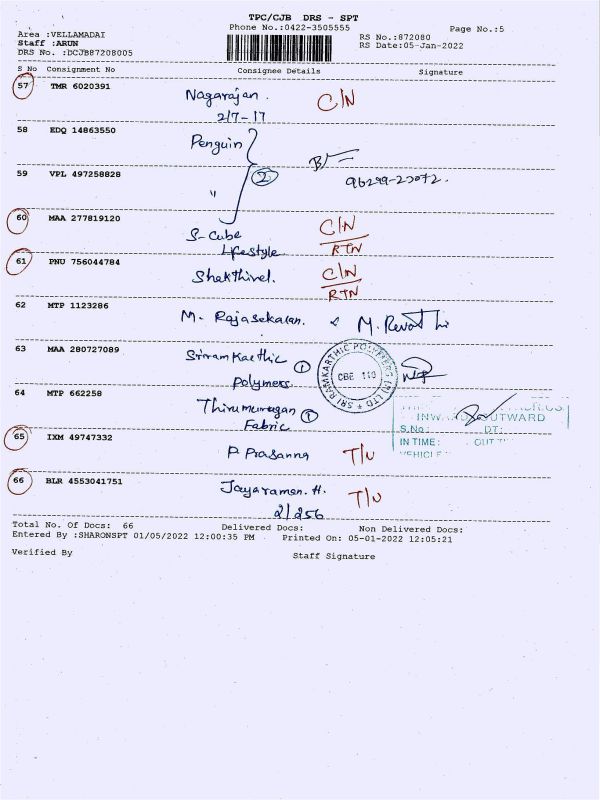 TPC/CJB DRS - SPT
Phone No.:0422-3505555
Page No.:5
Area :VELLAMADAI
Staff :ARUN
DRS No. :DCJB87208005
RS No.:872080
RS Date:05-Jan-2022
S No Consignment No Consignee Details Signature
57 TMR 6020391 Nagarajan. C/N
2/7-17
58 EDQ 14863550 Penguin
59 VPL 497258828 " 2
60 MAA 277819120 S-Cube C/N
Lifestyle RTN
61 PNU 756044784 Shakthivel. C/N
RTN
62 MTP 1123286 M. Rajasekaran.
63 MAA 280727089 Sriram Karthic 1
Polymers
SRI RAMKARTHIC POLYMERS (P) LTD
CBE 110
64 MTP 662258 Thirumurugan 1
Fabric
INWARD OUTWARD
S.No: DT:
IN TIME: OUT
VEHICLE
65 IXM 49747332 P. Prasanna T/U
66 BLR 4553041751 Jayaraman. H. T/U
2/256
Total No. Of Docs: 66 Delivered Docs: Non Delivered Docs:
Entered By :SHARONSPT 01/05/2022 12:00:35 PM Printed On: 05-01-2022 12:05:21
Verified By Staff Signature